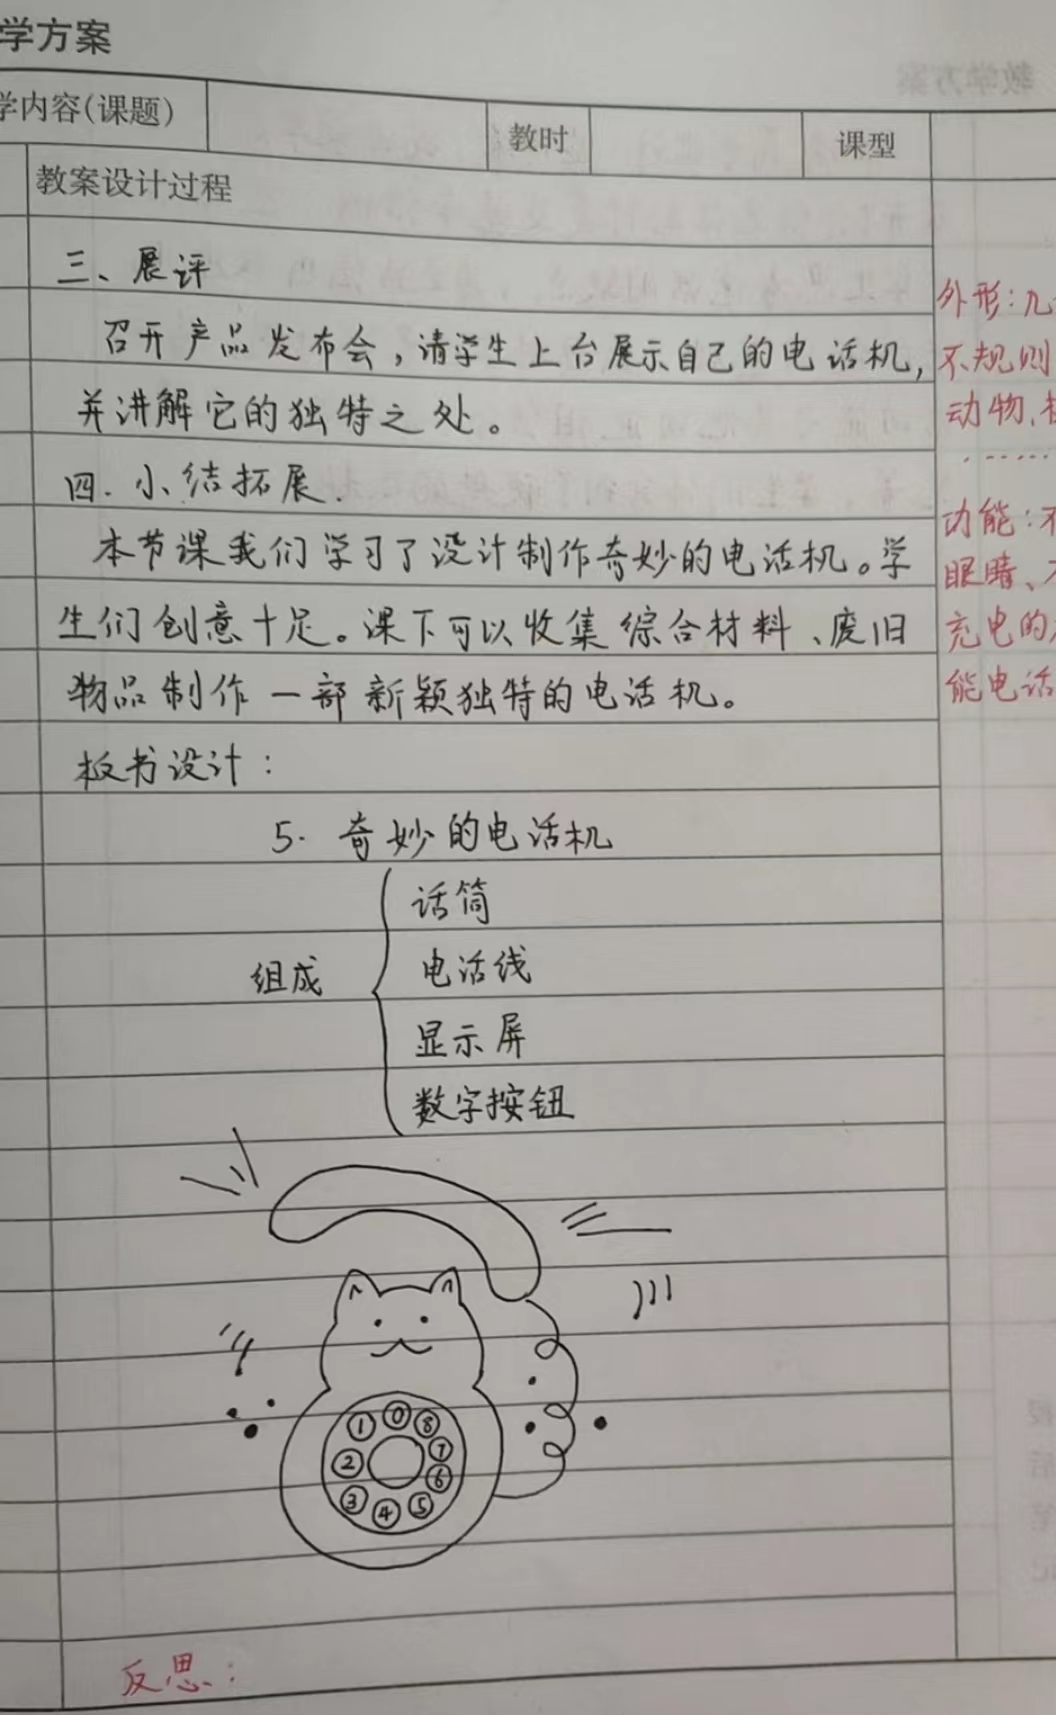 学方案
学内容(课题)
教时
课型
教案设计过程
三、展评
召开产品发布会,请学生上台展示自己的电话机,
并讲解它的独特之处。
四.小结拓展.
本节课我们学习了设计制作奇妙的电话机。学
生们创意十足。课下可以收集综合材料、废旧
物品制作一部新颖独特的电话机。
板书设计:
5.奇妙的电话机
组成
话筒
电话线
显示屏
数字按钮
1 0 8
2 7
6
3 4 5
反思:
外形:几
不规则
动物、
......
功能:不
眼睛、不
充电的
能电话